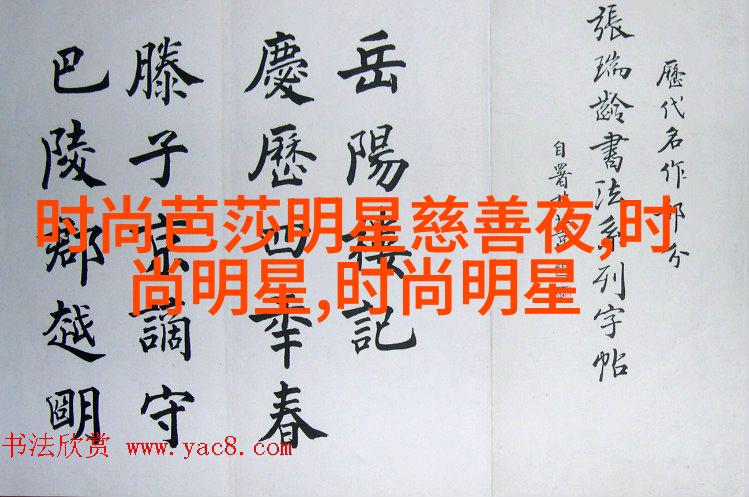 歷代名作部分
張瑞齡書法系列字帖
自署
岳陽樓記
慶歷四年春
滕子京謫守
巴陵郡越明
时尚芭莎明星慈善夜,时
尚明星,时尚明星
书法欣赏 www.yac8.com